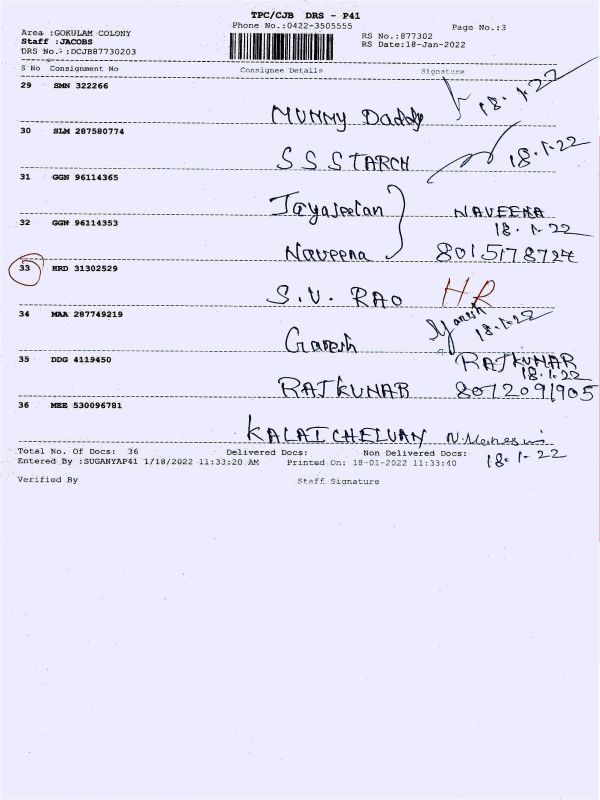 TPC/CJB DRS - P41
Phone No.:0422-3505555
Page No.:3
Area :GOKULAM COLONY
Staff :JACOBS
DRS No.:DCJB87730203
RS No.:877302
RS Date:18-Jan-2022
S No Consignment No Consignee Details Signature
29 SMN 322266
MUMMY Daddy 18.1.22
30 SLM 287580774
S S STARCH 18.1.22
31 GGN 96114365
Jayaseelan NAVEENA
18.1.22
32 GGN 96114353
Naveena 8015178724
33 HRD 31302529
S.V. RAO HR
34 MAA 287749219
Ganesh Ganesh 18.1.22
35 DDG 4119450
RAJKUMAR
18.1.22
RAJKUMAR 8072091905
36 MEE 530096781
KALAICHELVAN
18.1.22
Total No. Of Docs: 36 Delivered Docs: Non Delivered Docs:
Entered By :SUGANYAP41 1/18/2022 11:33:20 AM Printed On: 18-01-2022 11:33:40
Verified By Staff Signature